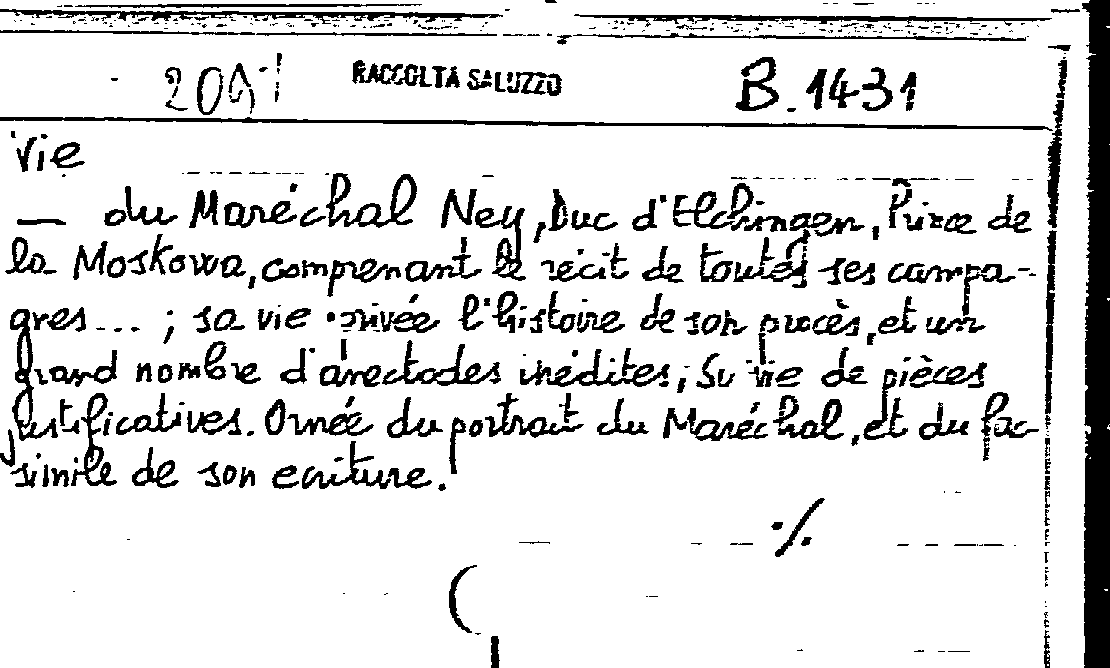 2091 RACCOLTA SALUZZO B. 1431
Vie
— du Maréchal Ney, Duc d'Elchingen, Prince de
la Moskowa, comprenant le récit de toutes ses campa-
gnes... ; sa vie privée l'histoire de son procès, et un
grand nombre d'anectodes inédites; Suivie de pièces
justificatives. Ornée du portrait du Maréchal, et du fac-
simile de son ecriture.
./.